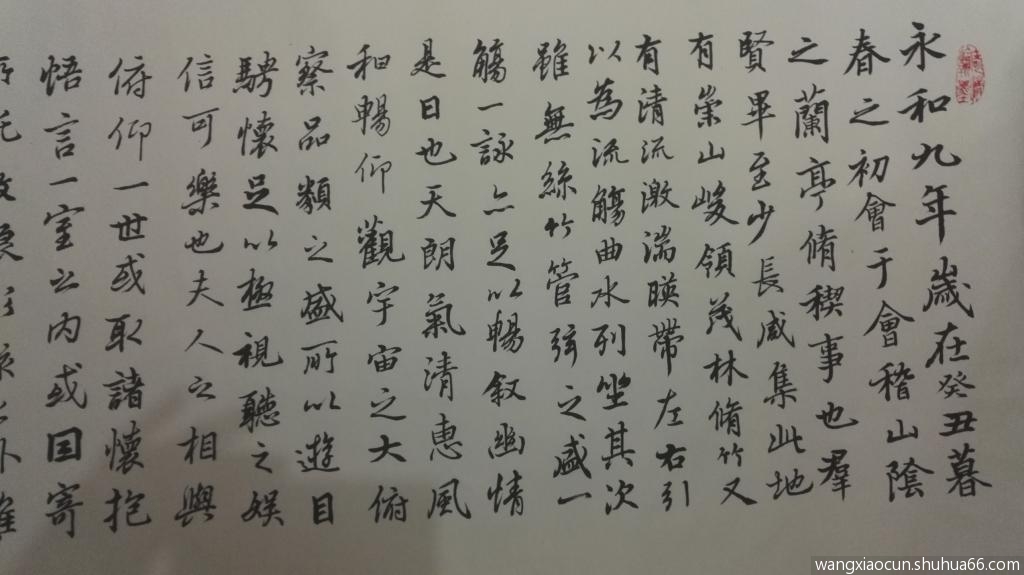 永和九年歲在癸丑暮
春之初會于會稽山陰
之蘭亭脩稧事也羣
賢畢至少長咸集此地
有崇山峻領茂林脩竹又
有清流激湍暎帶左右引
以為流觴曲水列坐其次
雖無絲竹管弦之盛一
觴一詠亦足以暢叙幽情
是日也天朗氣清惠風
和暢仰觀宇宙之大俯
察品類之盛所以遊目
騁懷足以極視聽之娛
信可樂也夫人之相與
俯仰一世或取諸懷抱
悟言一室之内或因寄
wangxiaocun.shuhua66.com